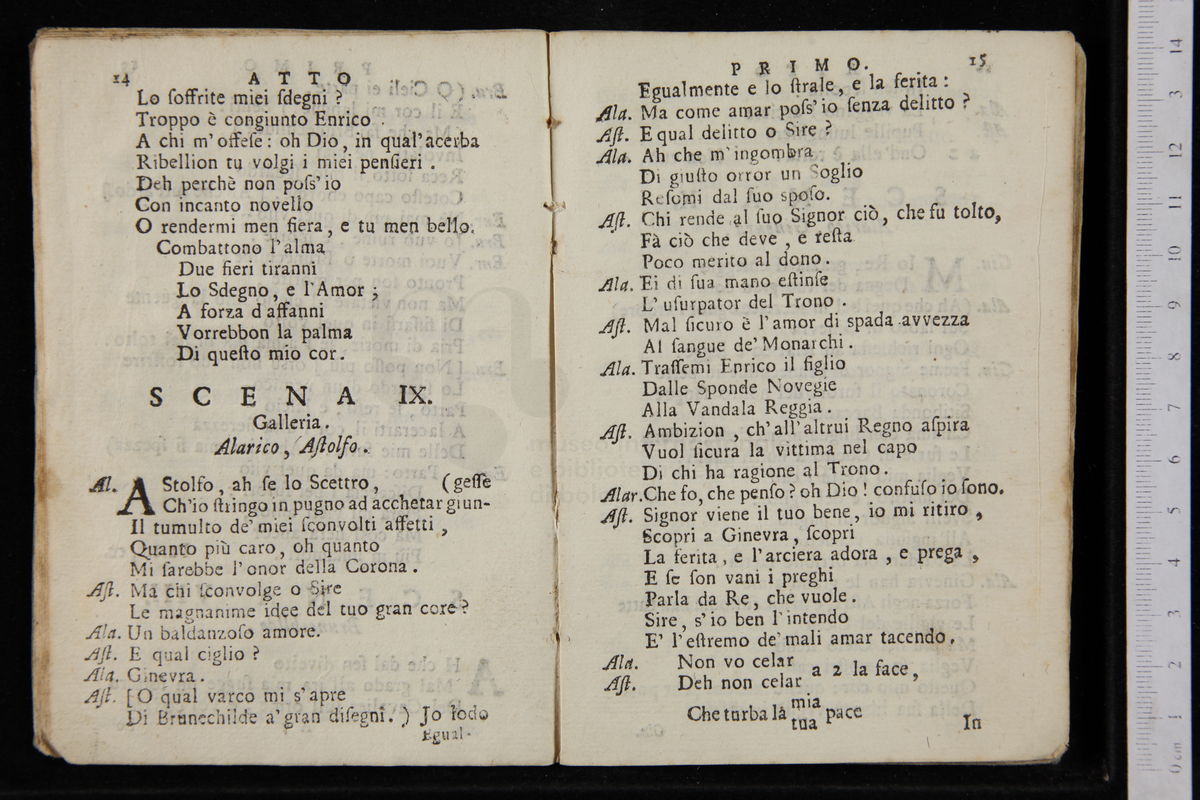 14 ATTO
Lo soffrite miei sdegni ?
Troppo è congiunto Enrico
A chi m'offese : oh Dio, in qual'acerba
Ribellion tu volgi i miei pensieri .
Deh perchè non poss'io
Con incanto novello
O rendermi men fiera, e tu men bello.
Combattono l'alma
Due fieri tiranni
Lo Sdegno, e l'Amor ;
A forza d affanni
Vorrebbon la palma
Di questo mio cor.
SCENA IX.
Galleria.
Alarico, Astolfo.
Al. AStolfo, ah se lo Scettro, (gesse
Ch'io stringo in pugno ad acchetar giun-
Il tumulto de' miei sconvolti affetti ,
Quanto più caro, oh quanto
Mi sarebbe l'onor della Corona .
Ast. Ma chi sconvolge o Sire
Le magnanime idee del tuo gran core ?
Ala. Un baldanzoso amore.
Ast. E qual ciglio ?
Ala. Ginevra.
Ast. [O qual varco mi s'apre
Di Brunechilde a' gran disegni. ) Jo lodo
Egual-
PRIMO. 15
Egualmente e lo strale, e la ferita :
Ala. Ma come amar poss'io senza delitto ?
Ast. E qual delitto o Sire ?
Ala. Ah che m'ingombra
Di giusto orror un Soglio
Resomi dal suo sposo.
Ast. Chi rende al suo Signor ciò, che fu tolto,
Fà ciò che deve , e resta
Poco merito al dono.
Ala. Ei di sua mano estinse
L' usurpator del Trono .
Ast. Mal sicuro è l'amor di spada avvezza
Al sangue de' Monarchi.
Ala. Trassemi Enrico il figlio
Dalle Sponde Novegie
Alla Vandala Reggia.
Ast. Ambizion , ch'all'altrui Regno aspira
Vuol sicura la vittima nel capo
Di chi ha ragione al Trono.
Alar. Che fo, che penso ? oh Dio ! confuso io sono.
Ast. Signor viene il tuo bene, io mi ritiro ,
Scopri a Ginevra, scopri
La ferita, e l'arciera adora , e prega ,
E se son vani i preghi
Parla da Re, che vuole.
Sire, s'io ben l'intendo
E' l'estremo de' mali amar tacendo.
Ala. Non vo celar
Ast. Deh non celar a 2 la face,
Che turba la mia
tua pace
In